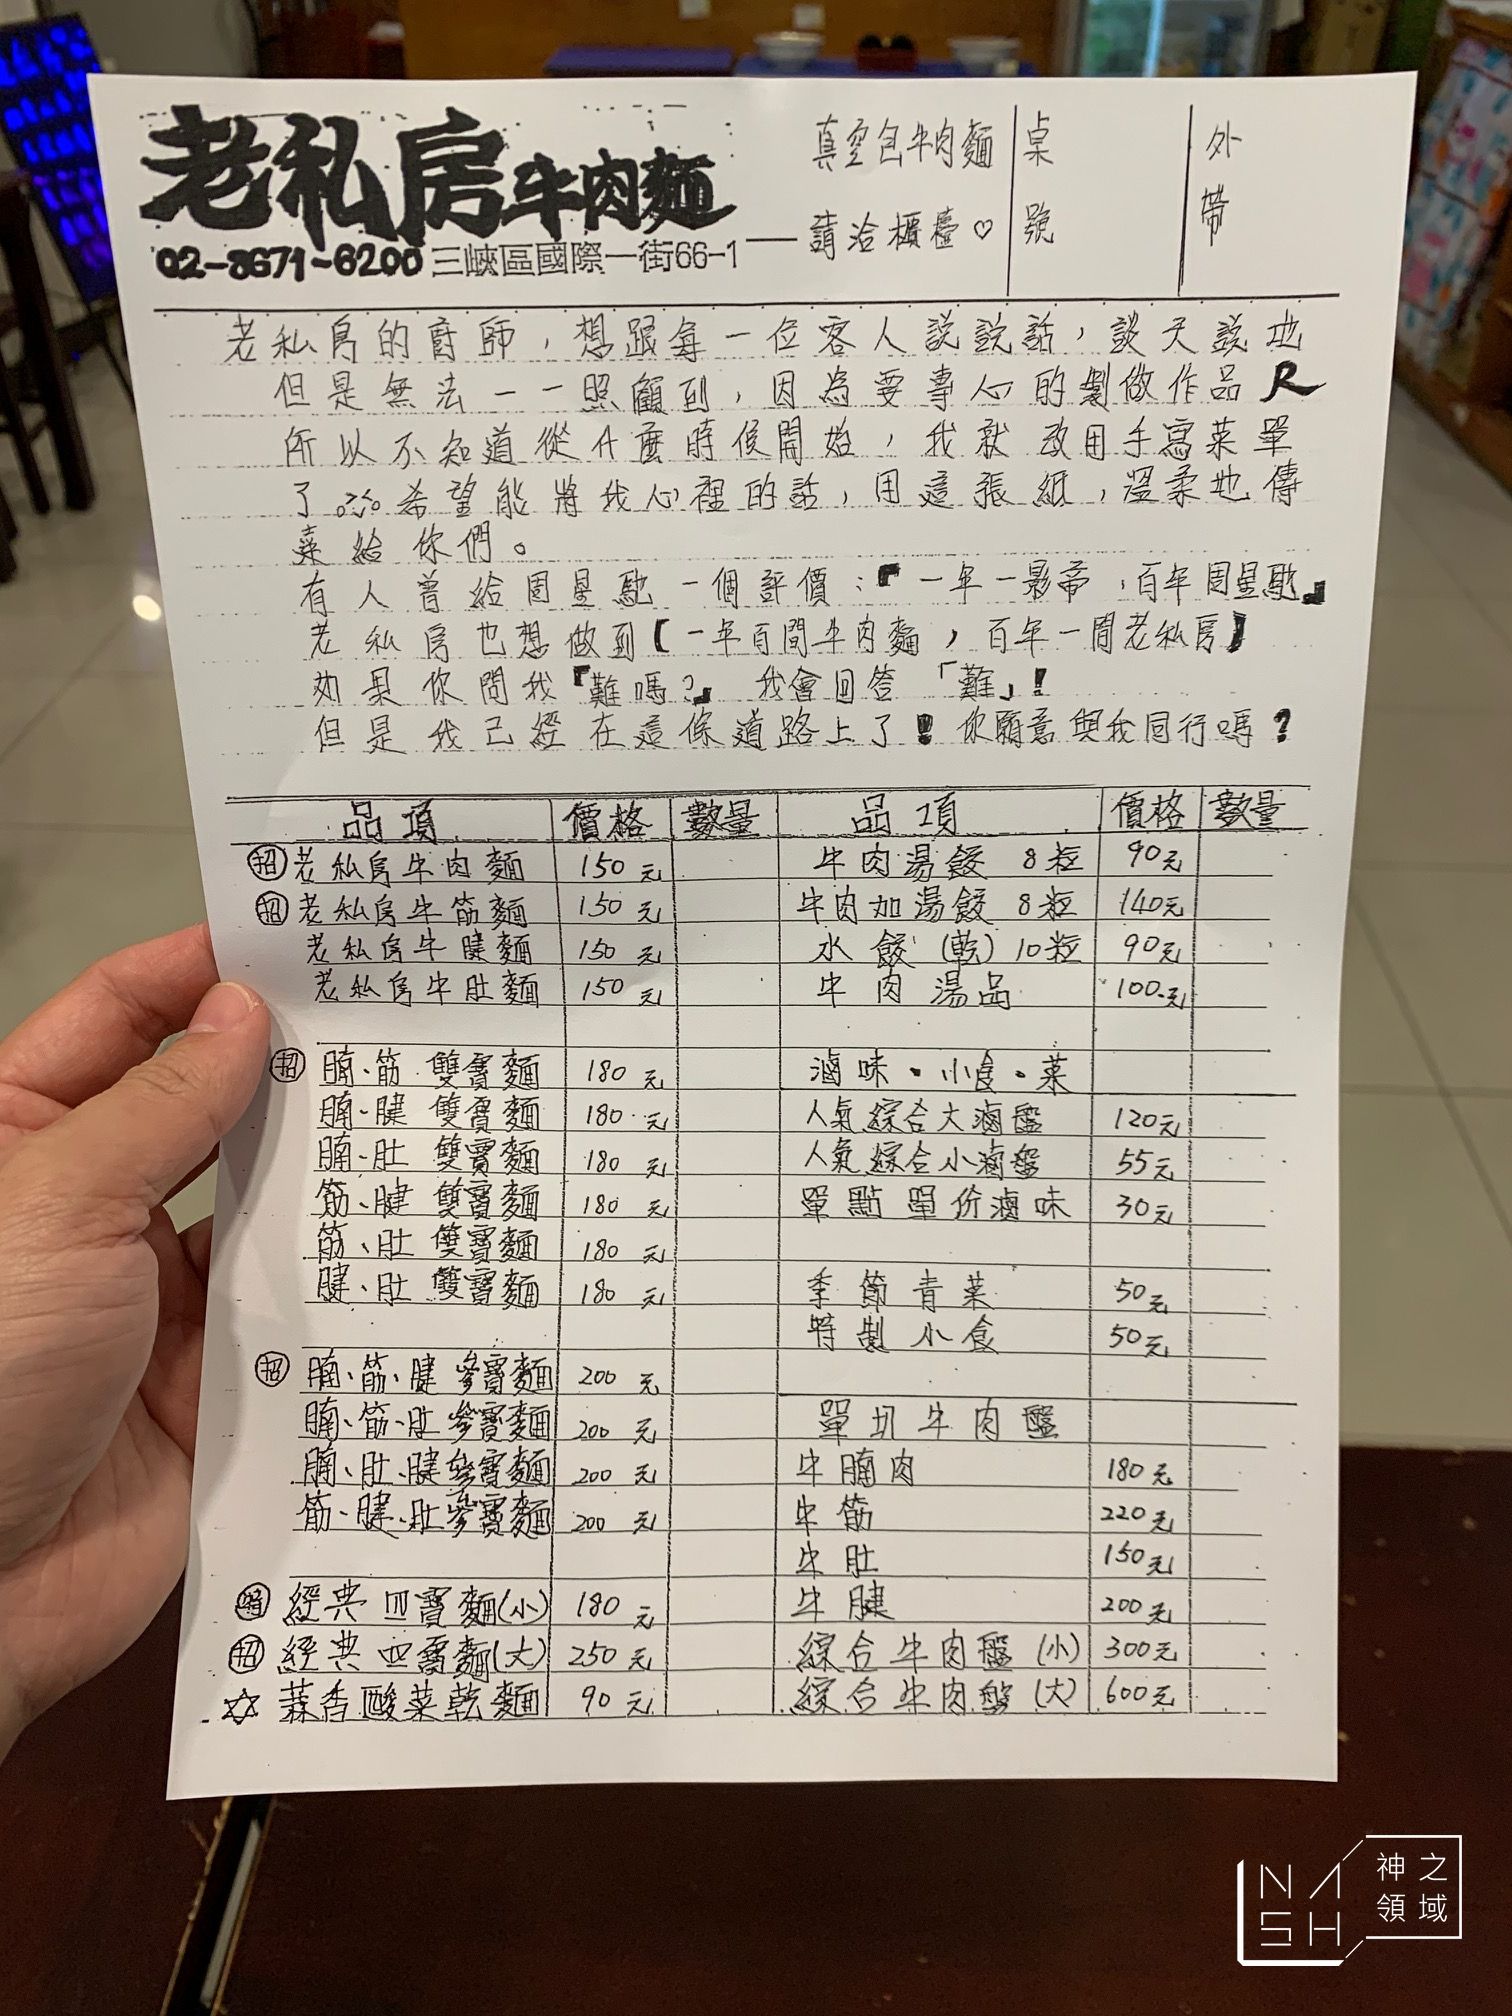 老私房牛肉麵
02-8671-6200 三峽區國際一街66-1
真空包牛肉麵
請洽櫃檯♡
桌號
外帶
老私房的廚師，想跟每一位客人說說話，談天說地
但是無法一一照顧到，因為要專心的製做作品
所以不知道從什麼時候開始，我就改用手寫菜單
了。希望能將我心裡的話，用這張紙，溫柔地傳
菜給你們。
有人曾給周星馳一個評價：『一年一影帝，百年周星馳』
老私房也想做到【一年百間牛肉麵，百年一間老私房】
如果你問我『難嗎？』 我會回答「難」!
但是我已經在這條道路上了！你願意與我同行嗎？
品項 價格 數量 品項 價格 數量
招 老私房牛肉麵 150元 牛肉湯餃 8粒 90元
招 老私房牛筋麵 150元 牛肉加湯餃 8粒 140元
老私房牛腱麵 150元 水餃(乾)10粒 90元
老私房牛肚麵 150元 牛肉湯品 100元
招 腩、筋 雙寶麵 180元 滷味・小食・菜
腩、腱 雙寶麵 180元 人氣綜合大滷盤 120元
腩、肚 雙寶麵 180元 人氣綜合小滷盤 55元
筋、腱 雙寶麵 180元 單點單份滷味 30元
筋、肚 雙寶麵 180元
腱、肚 雙寶麵 180元 季節青菜 50元
特製小食 50元
招 腩、筋、腱 參寶麵 200元
腩、筋、肚參寶麵 200元 單切牛肉盤
腩、肚、腱參寶麵 200元 牛腩肉 180元
筋、腱、肚參寶麵 200元 牛筋 220元
牛肚 150元
經典四寶麵(小) 180元 牛腱 200元
招 經典四寶麵(大) 250元 綜合牛肉盤(小) 300元
☆ 蒜香酸菜乾麵 90元 綜合牛肉盤(大) 600元
NASH 神之領域